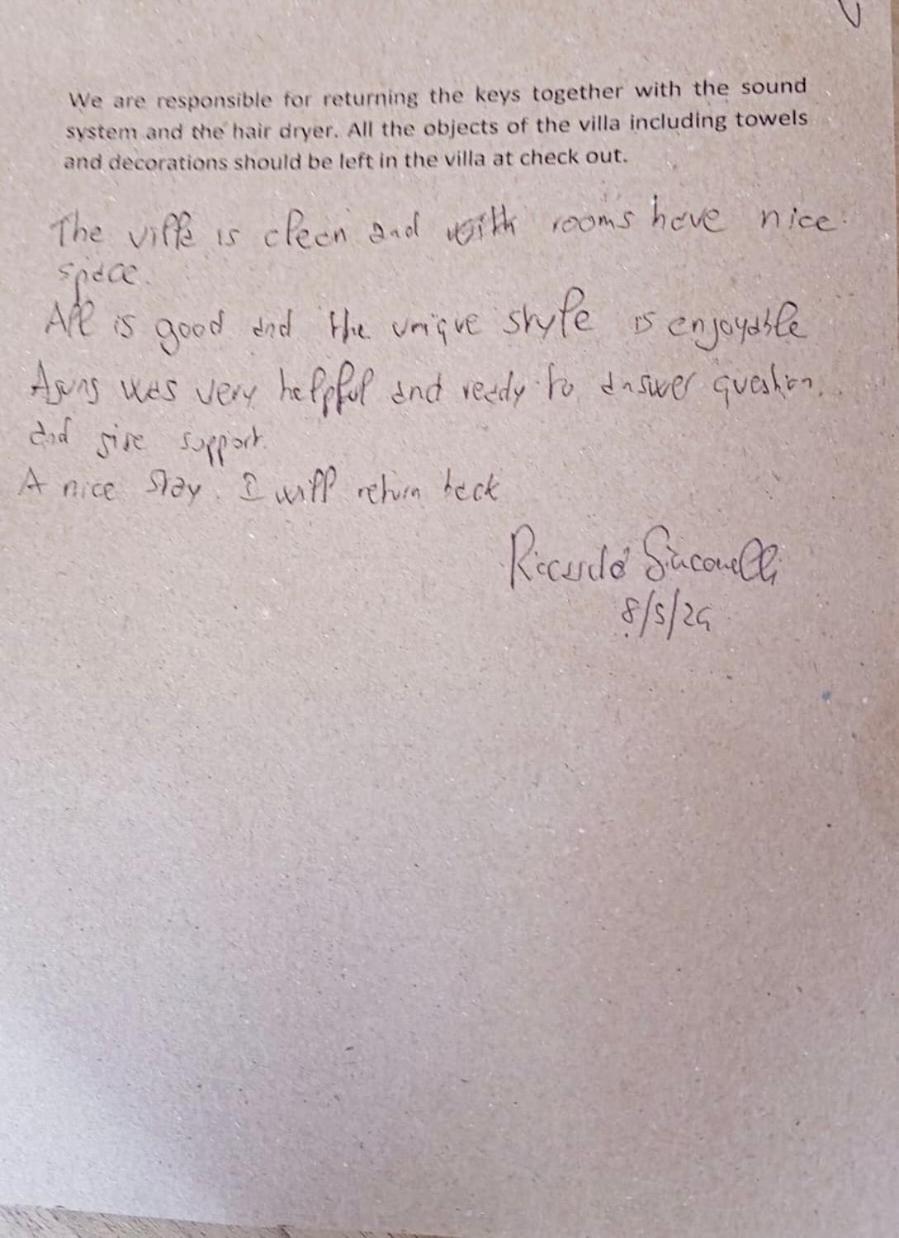 We are responsible for returning the keys together with the sound
system and the hair dryer. All the objects of the villa including towels
and decorations should be left in the villa at check out.
The villa is clean and with rooms have nice
space.
All is good and the unique style is enjoyable
Agung was very helpful and ready to answer question
and give support.
A nice stay. I will return back
Riccardo
8/5/24